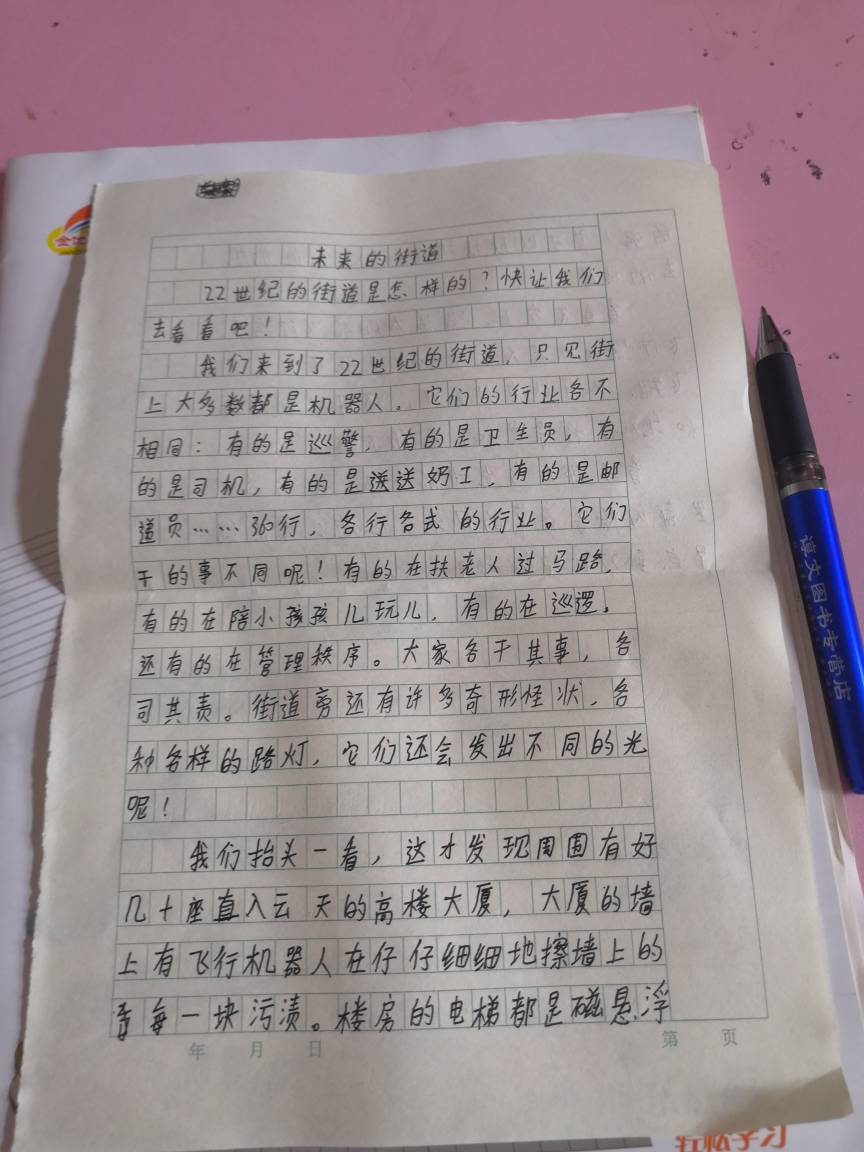 未来的街道
22世纪的街道是怎样的？快让我们
去看看吧！
我们来到了22世纪的街道，只见街
上大多数都是机器人。它们的行业各不
相同：有的是巡警，有的是卫生员，有
的是司机，有的是送送奶工，有的是邮
道员……360行，各行各式的行业。它们
干的事不同呢！有的在扶老人过马路，
有的在陪小孩孩儿玩儿，有的在巡逻，
还有的在管理秩序。大家各干其事，各
司其责。街道旁还有许多奇形怪状，各
种各样的路灯，它们还会发出不同的光
呢！
我们抬头一看，这才发现周围有好
几十座直入云天的高楼大厦，大厦的墙
上有飞行机器人在仔仔细细地擦墙上的
每一块污渍。楼房的电梯都是磁悬浮
年 月 日 第 页
淳文图书专营店
轻松学习